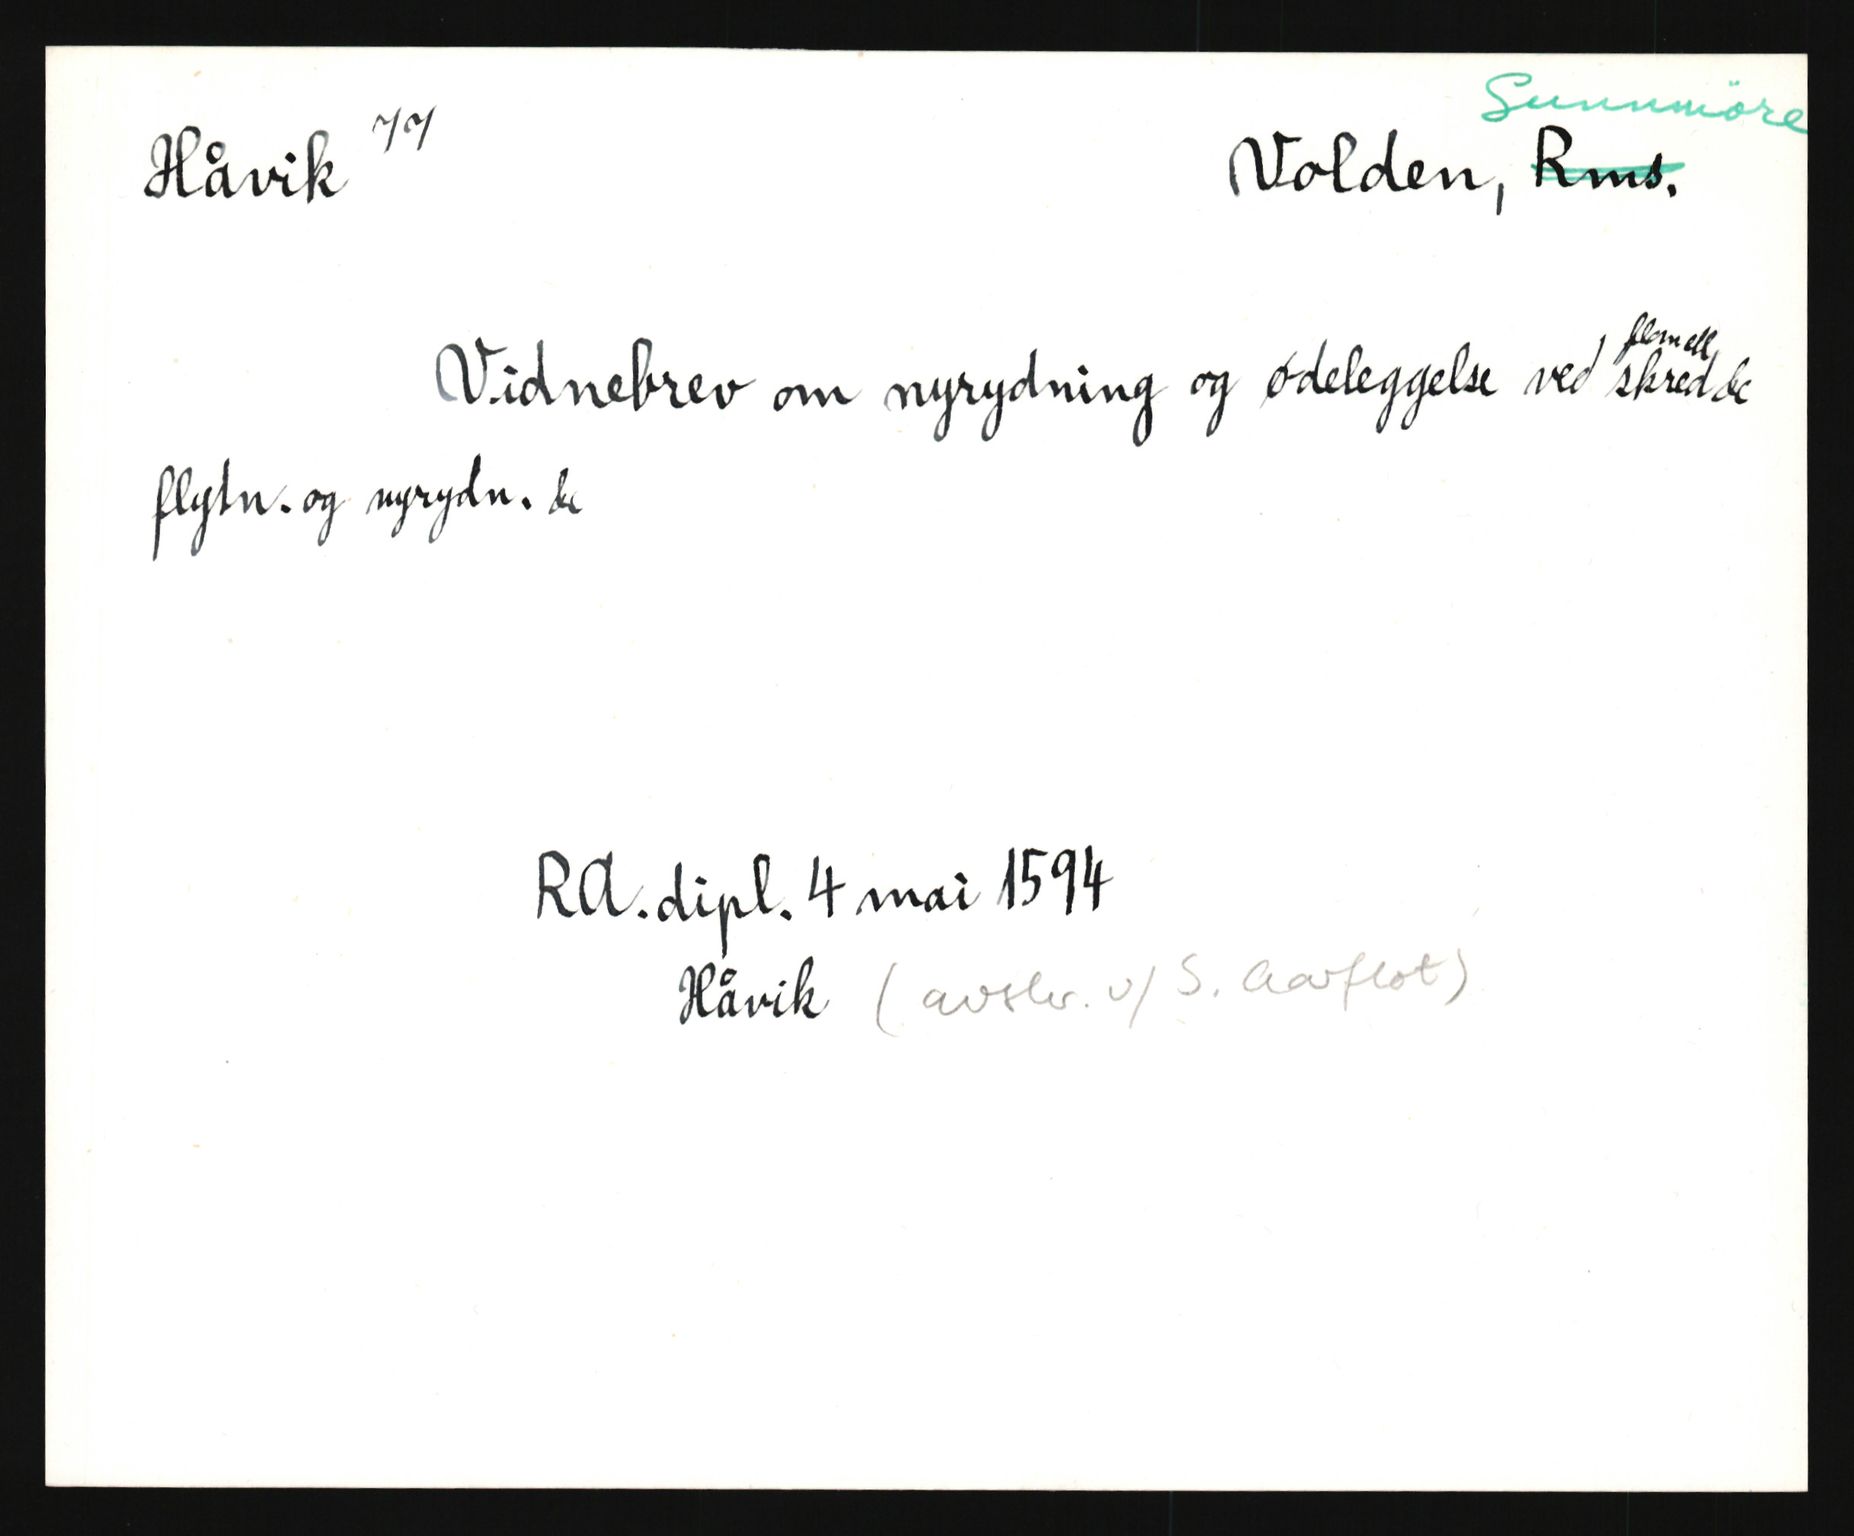 Sunnmöre
Håvik 77 Volden, Rms.
flom ell.
Vidnebrev om nyrydning og ødeleggelse ved skred &c
flytn. og nyrydn. &c
RA. dipl. 4 mai 1594
Håvik (avskr. v/ S. Aarflot)